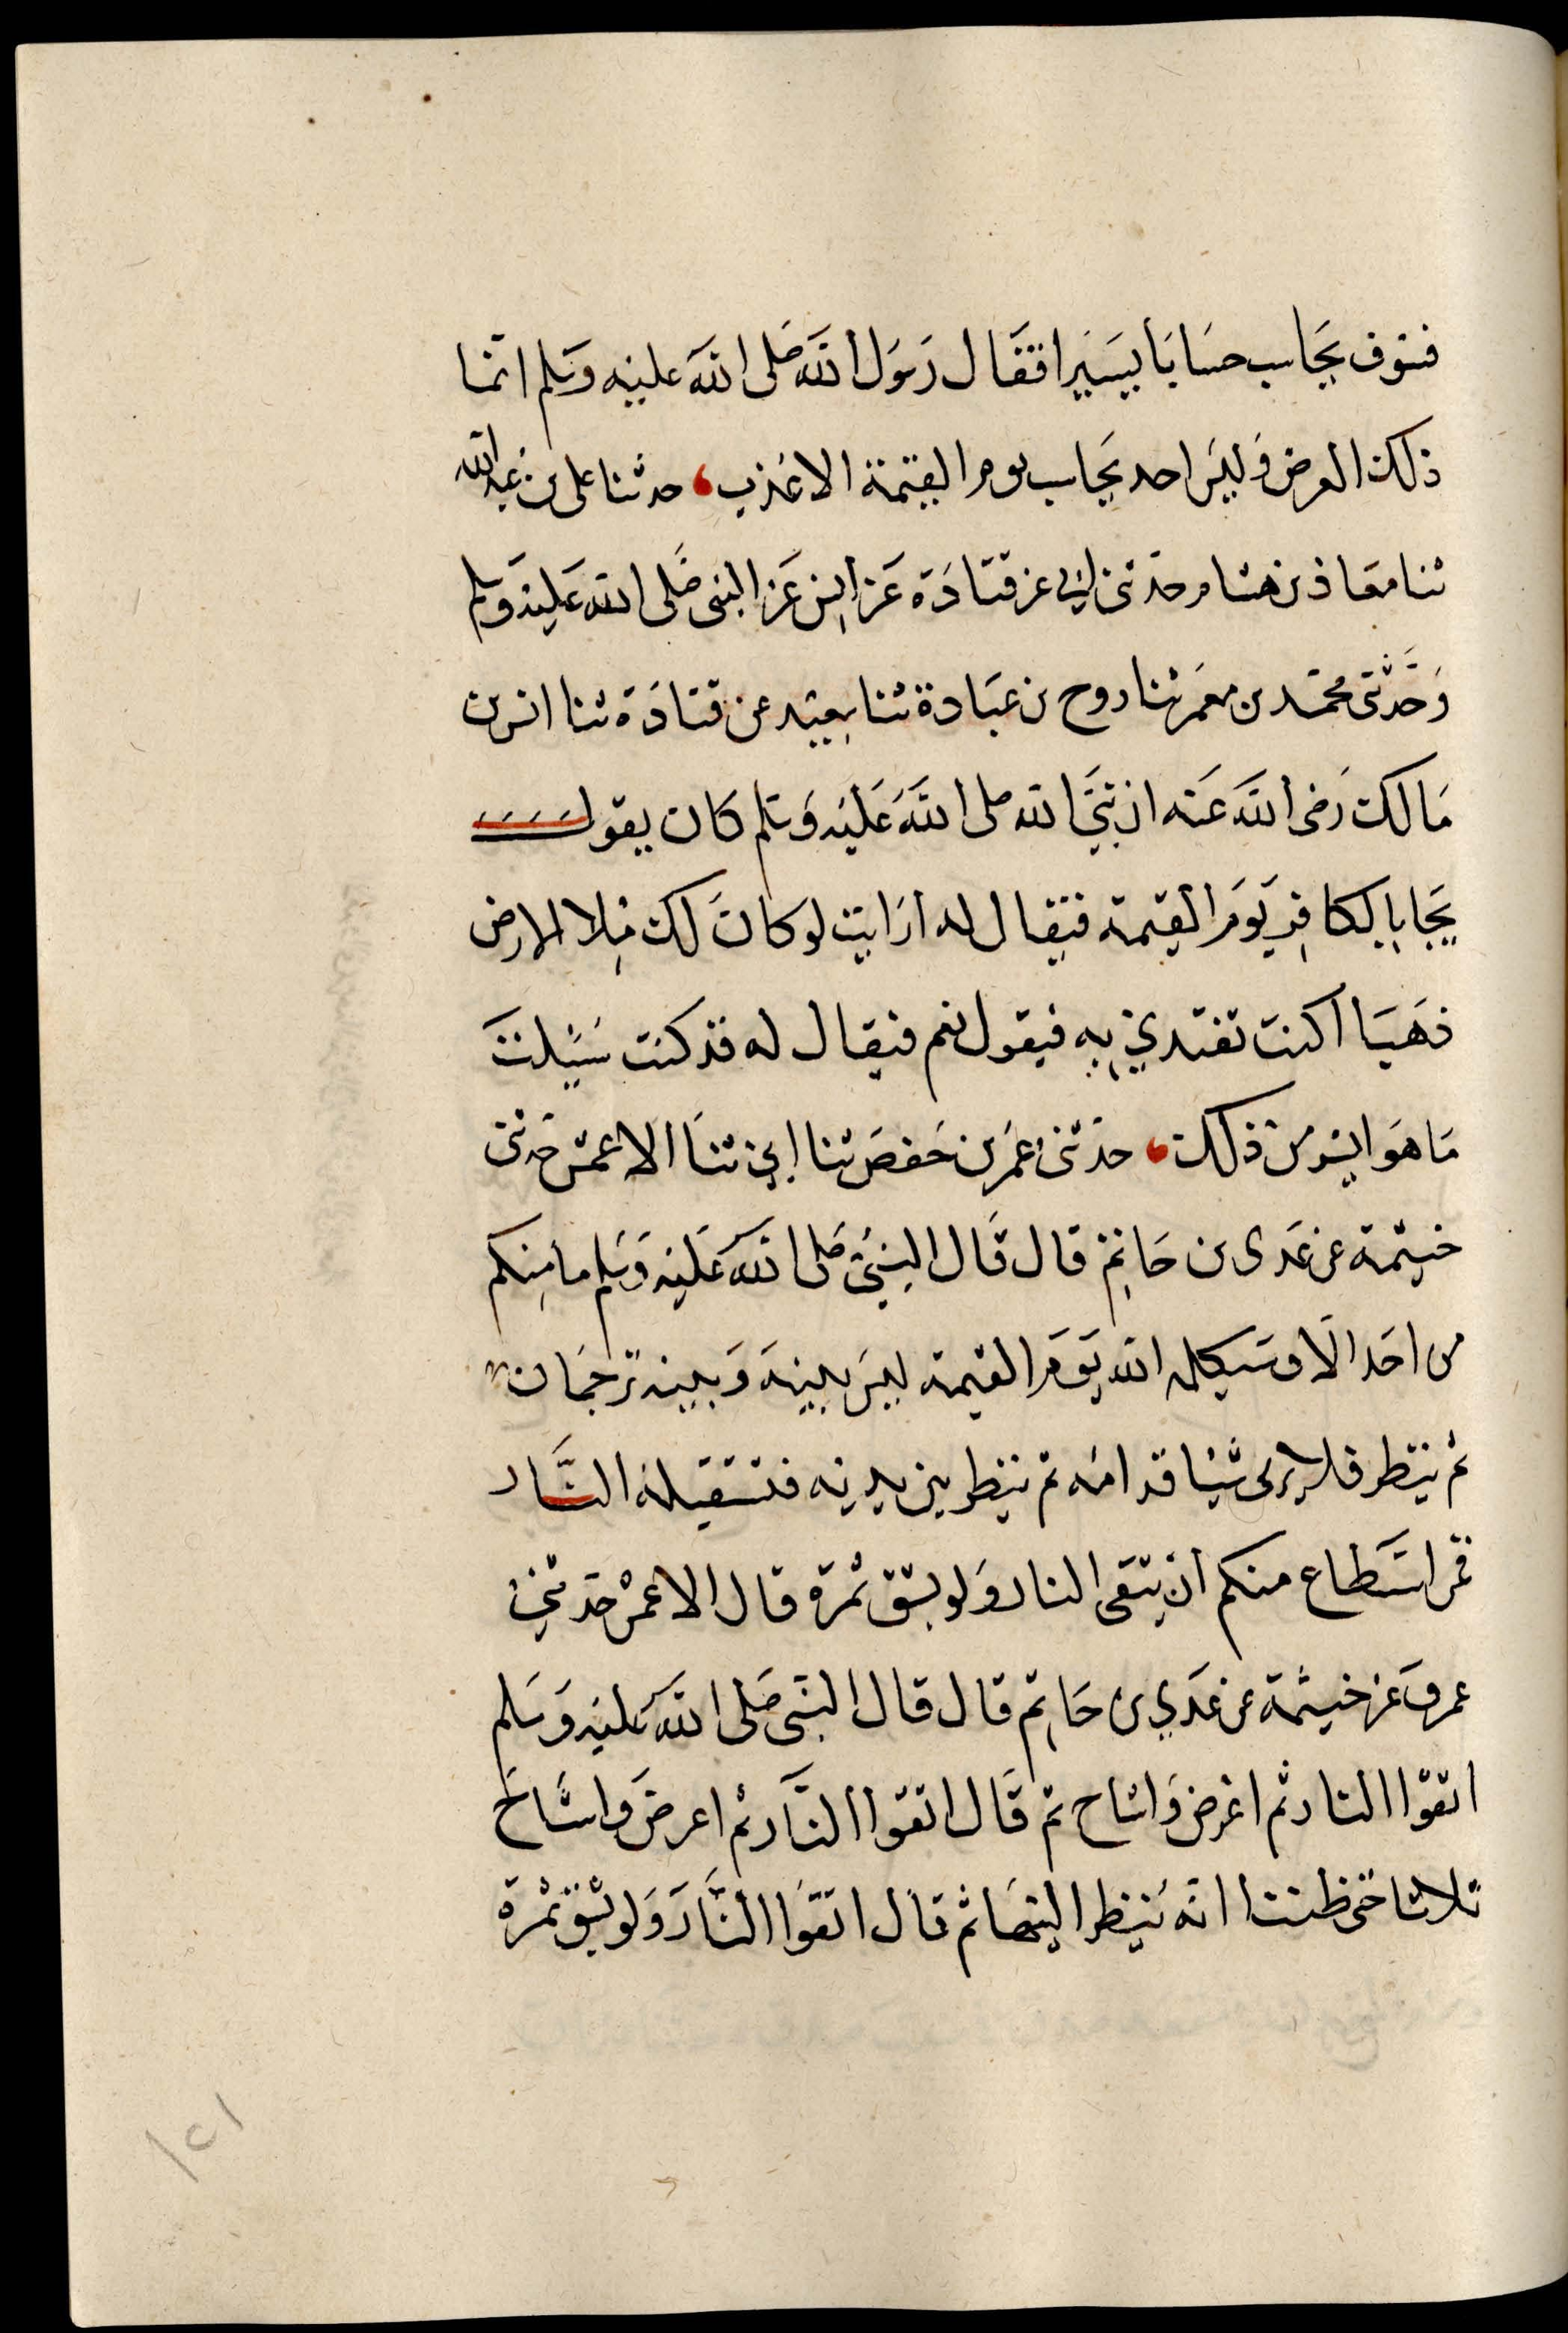 فسوف يحاسب حسابا يسيرا فقال رسول الله صلى الله عليه وسلم انما
ذلك العرض وليس احد يحاسب يوم القيمة الا عذب، حدثنا على بن عبد الله
ثنا معاذ بن هشام حدثنى ابى عن قتادة عن انس عن النبى صلى الله عليه وسلم
وحدثنى محمد بن معمر ثنا روح بن عبادة ثنا سعيد عن قتادة ثنا انس بن
مالك رضى الله عنه ان نبى الله صلى الله عليه وسلم كان يقول
يجا بالكافر يوم القيمة فيقال له ارايت لو كان لك ملا الارض
ذهبا اكنت تفتدي به فيقول نعم فيقال له قد كنت سئلت
ما هو ايسر من ذلك، حدثنى عمر بن حفص ثنا ابي ثنا الاعمش حدثنى
خيثمة عن عدى بن حاتم قال قال النبى صلى الله عليه وسلم ما منكم
من احد الا وسيكلمه الله يوم القيمة ليس بينه وبينه ترجمان
ثم ينظر فلا يرى شيئا قدامه ثم ينظر بين يديه فتستقبله النار
فمن استطاع منكم ان يتقى النار ولو بشق تمرة قال الاعمش حدثني
عمرو عن خيثمة عن عدي بن حاتم قال قال النبى صلى الله عليه وسلم
اتقوا النار ثم اعرض واشاح ثم قال اتقوا النار ثم اعرض واشاح
ثلاثا حتى ظننا انه ينظر اليها ثم قال اتقوا النار ولو بشق تمرة
١٢١